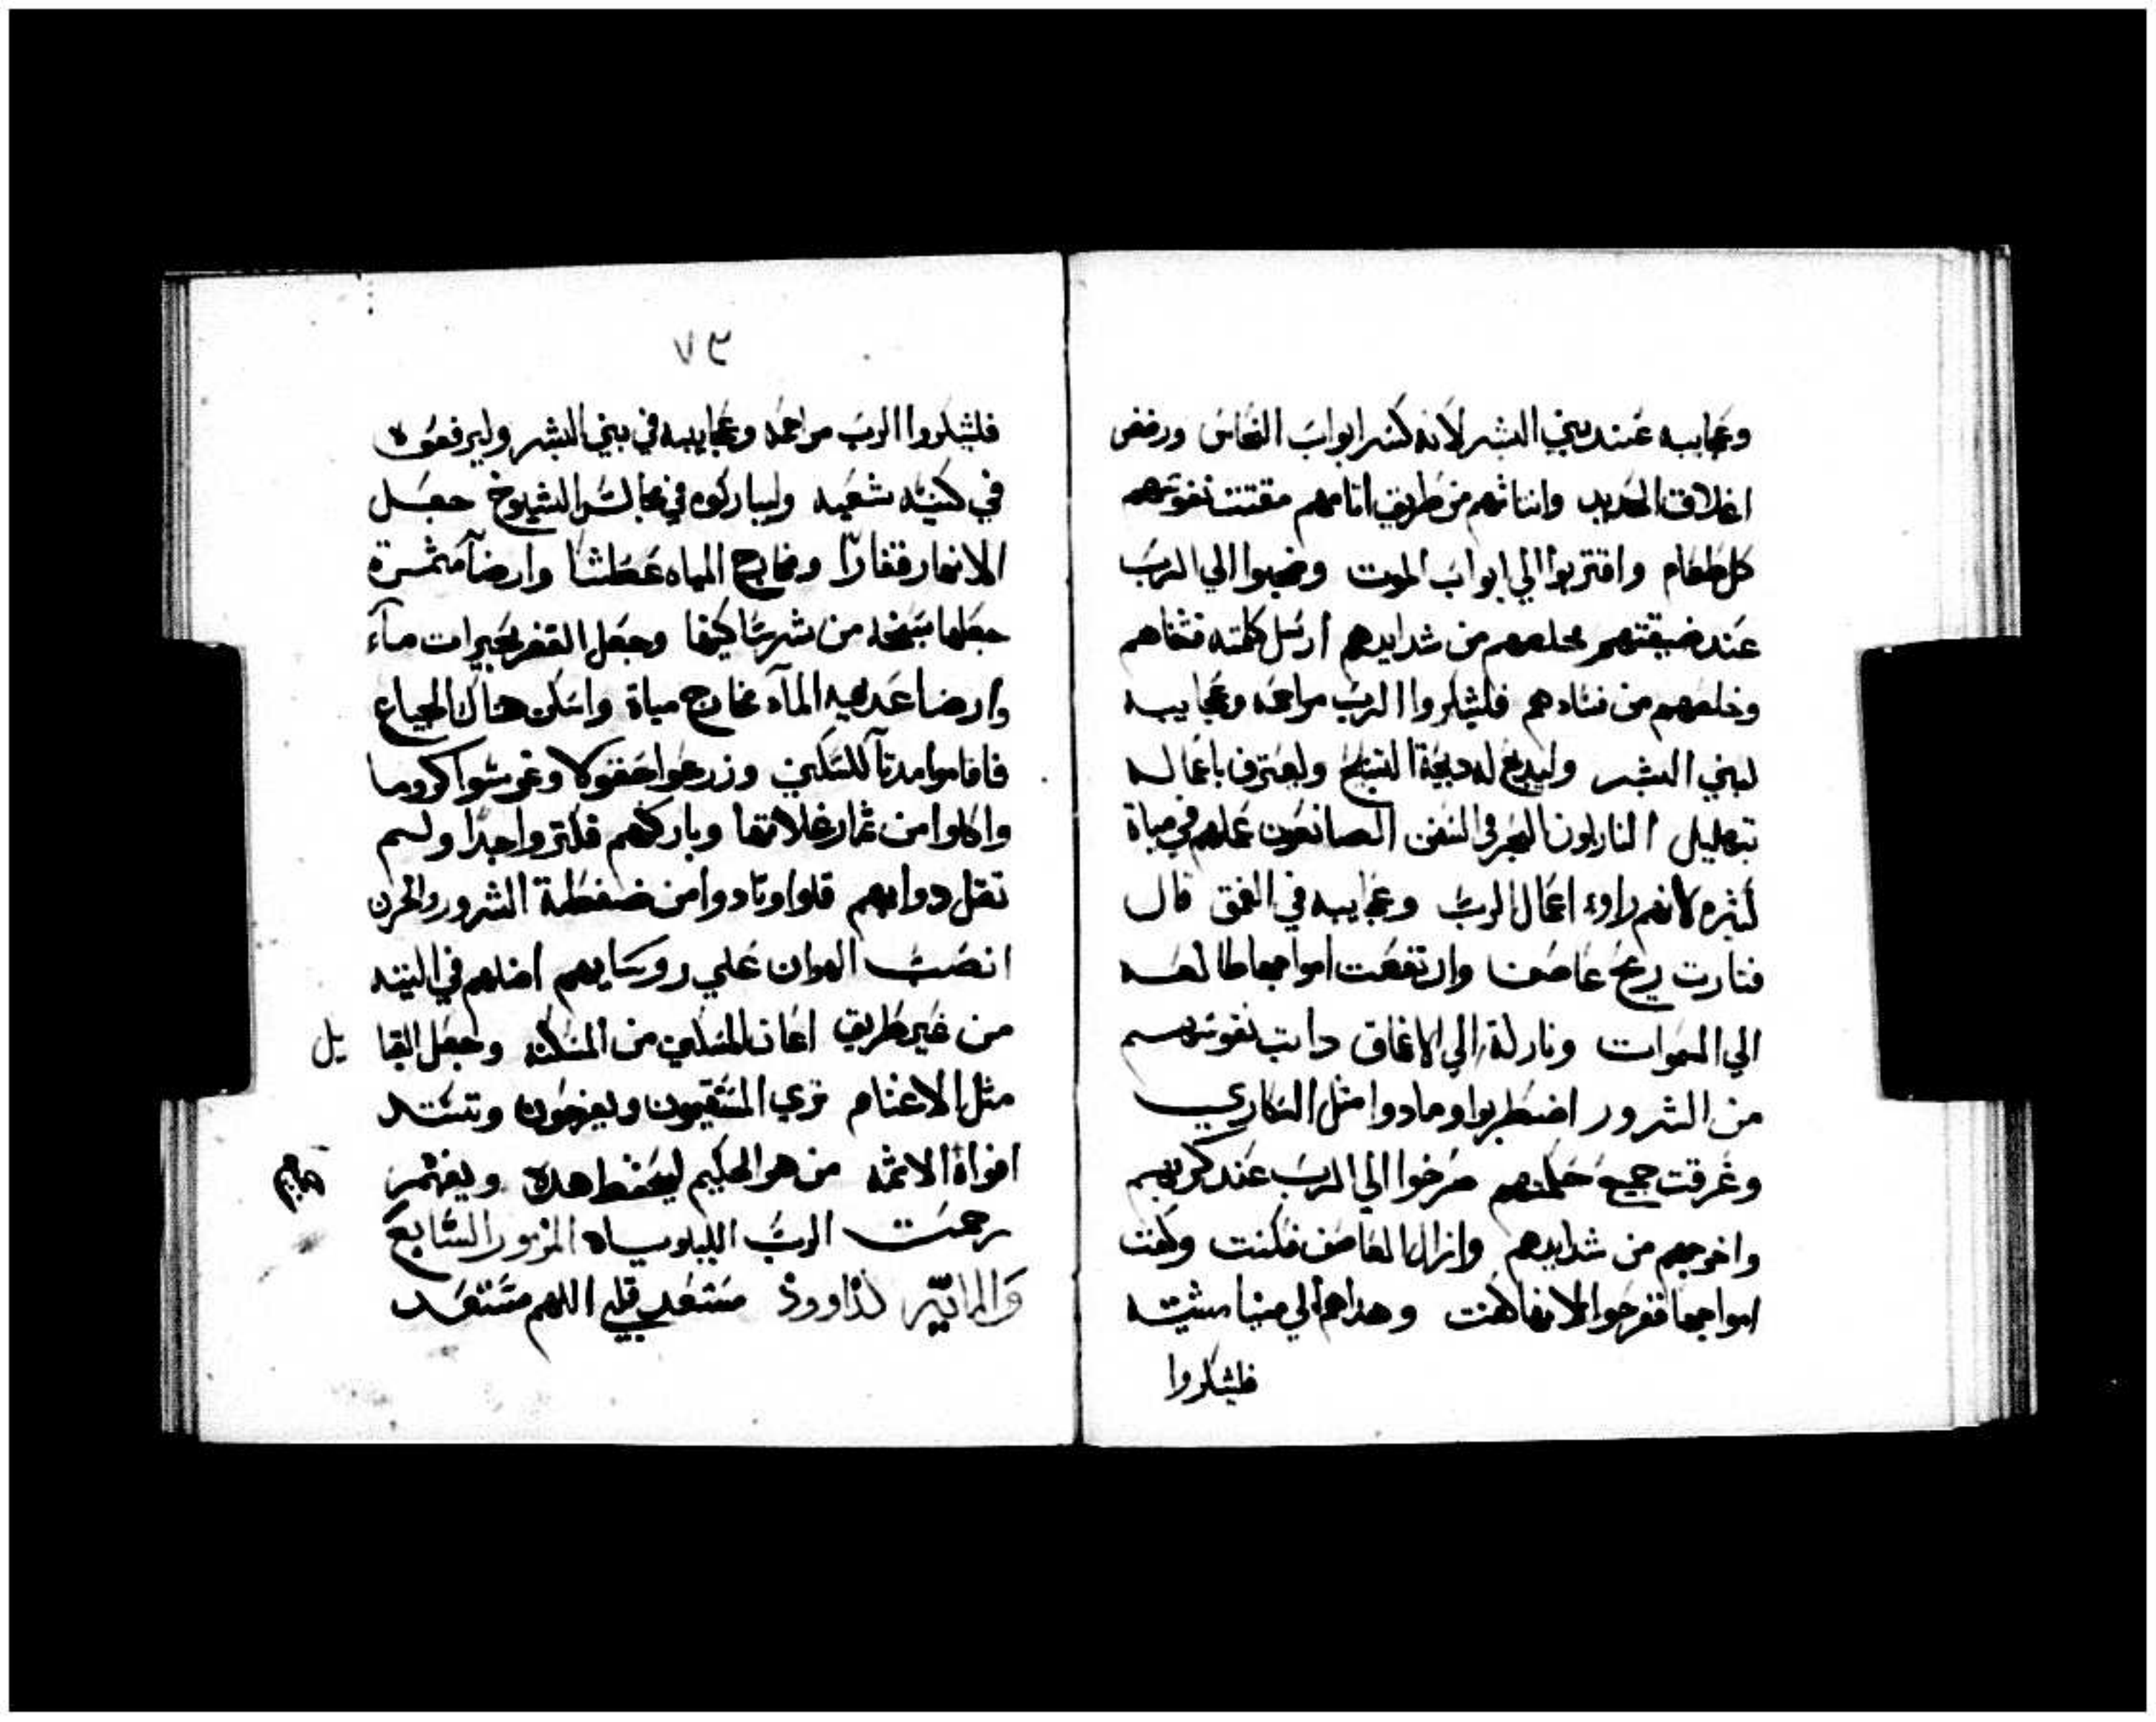 وعجايبه عند بني البشر لانه كسر ابواب النحاس ورضض
اغلاق الحديد وانتاشهم من طريق اثامهم مقتت نفوسهم
كل طعام واقتربوا الي ابواب الموت وضجوا الي الرب
عند ضيقتهم فخلصهم من شدايدهم ارسل كلمته فشفاهم
وخلصهم من فسادهم فليشكروا الرب مراحمه وعجايبه
لبني البشر وليدبح له دبيحة التسبيح وليعترف باعماله
بتهليل النازلون البحر في السفن الصانعون عملهم في مياة
كثيره لانهم راوء اعمال الرب وعجايبه في العمق قال
فثارت ريح عاصف وارتفعت امواجها طالعه
الي السموات ونازلة الي الاعماق دابت نفوسهم
من الشرور اضطربوا ومادوا مثل السكاري
وغرقت جميع حكمتهم صرخوا الي الرب عند كربهم
واخرجهم من شدايدهم وانزل العاصف فسكنت وكفت
امواجها ففرحوا لانها كفت وهداهم الي مينا مشيته
فليشكروا
٧٣
فليشكروا الرب مراحمه وعجايبه في بني البشر وليرفعوه
في كنيسة شعبه وليباركوه في مجالس الشيوخ جعل
الانهار قفارًا ومخارج المياه عطشا وارضاً مثمرة
جعلها سبخه من شر ساكنيها وجعل القفر بحيرات مآء
وارضا عديمه المآء مخارج مياة واسكن هناك الجياع
فاقاموا مدناً للسكني وزرعوا حقولا وغرسوا كروما
واكلوا من ثمار غلاتها وباركهم فكثروا جدًا ولم
تقل دوابهم قلوا وتادوا من ضغطة الشرور والحزن
انصب الهوان علي روسايهم اضلهم في التيه
من غير طريق اعان المسكين من المسكنة وجعل القبا يل
مثل الاغنام تري المستقيمون ويفرحون وتستد
افواة الاثمه من هو الحكيم ليحفظ هدة ويفهم
رحمت الرب الليلوياه المزمور السابع
والمايه لداوود مستعد قلبي اللهم مستعد